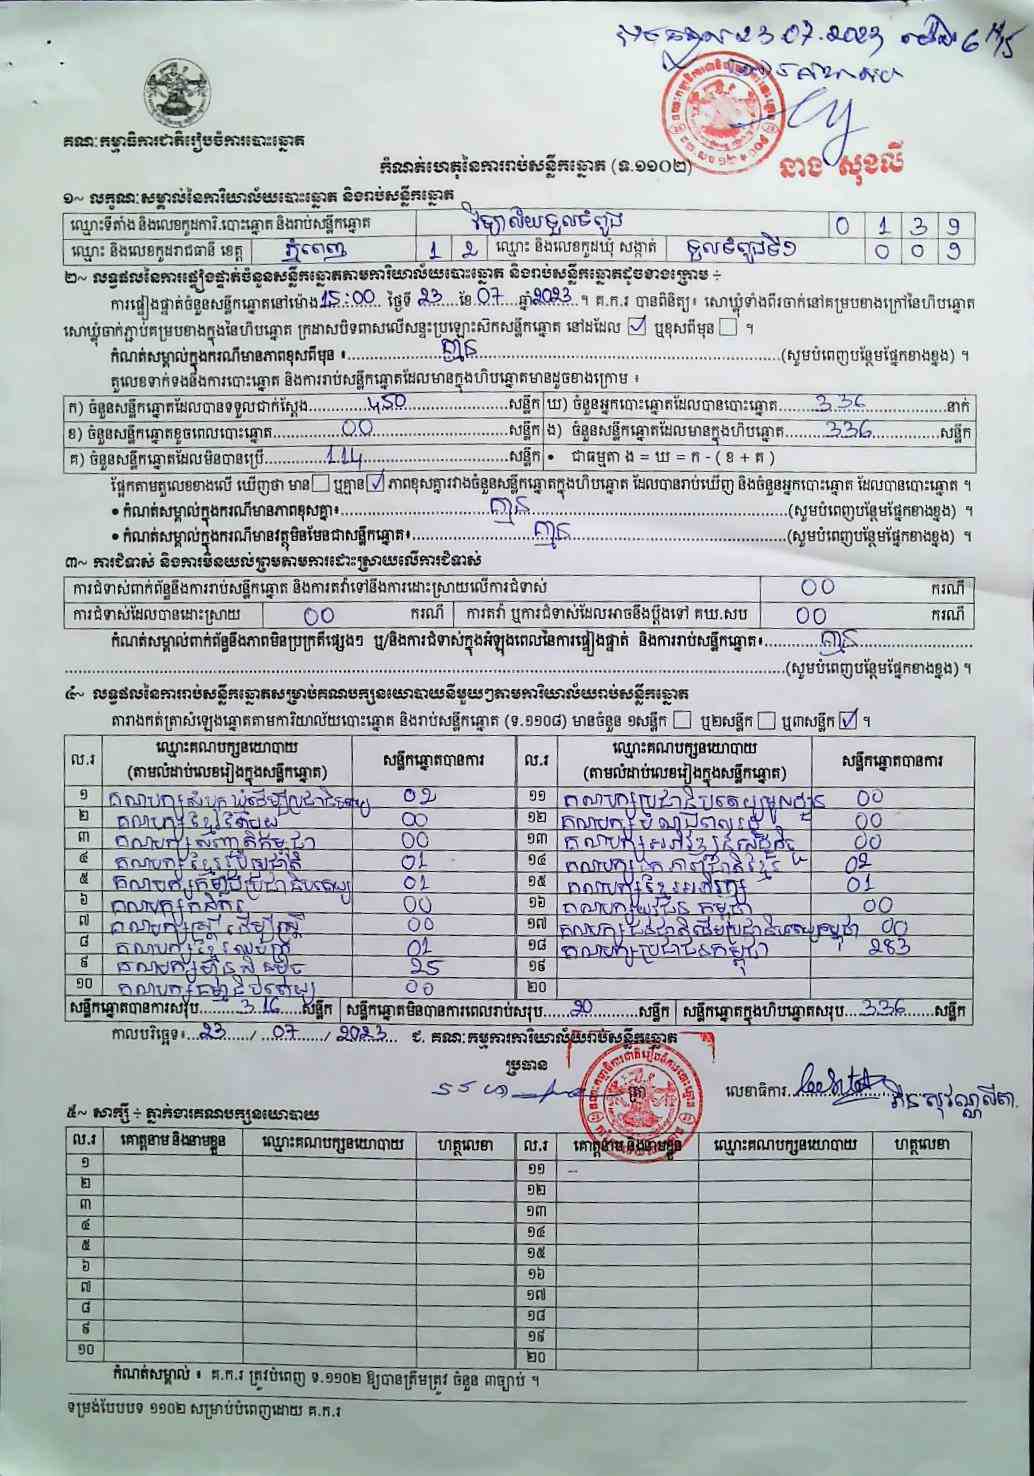 23.07.2023
គណៈកម្មាធិការជាតិរៀបចំការបោះឆ្នោត
កំណត់ហេតុនៃការរាប់សន្លឹកឆ្នោត (ទ.១១០២)
នាង សុខលី
១~ លក្ខណៈសម្គាល់នៃការិយាល័យបោះឆ្នោត និងរាប់សន្លឹកឆ្នោត
ឈ្មោះទីតាំង និងលេខកូដការិ.បោះឆ្នោត និងរាប់សន្លឹកឆ្នោត វិទ្យាល័យទួលទំពូង 0 1 3 9
ឈ្មោះ និងលេខកូដរាជធានី ខេត្ត ភ្នំពេញ 1 2 ឈ្មោះ និងលេខកូដឃុំ សង្កាត់ ទួលទំពូងទី១ 0 0 9
២~ លទ្ធផលនៃការផ្ទៀងផ្ទាត់ចំនួនសន្លឹកឆ្នោតតាមការិយាល័យបោះឆ្នោត និងរាប់សន្លឹកឆ្នោតដូចខាងក្រោម ÷
ការផ្ទៀងផ្ទាត់ចំនួនសន្លឹកឆ្នោតនៅម៉ោង 15:00 ថ្ងៃទី 23 ខែ 07 ឆ្នាំ 2023 ។ គ.ក.រ បានពិនិត្យ៖ សោឃ្លុំទាំងពីរចាក់នៅគម្របខាងក្រៅនៃហិបឆ្នោត
សោឃ្លុំចាក់ភ្ជាប់គម្របខាងក្នុងនៃហិបឆ្នោត ក្រដាសបិទពាសលើសន្ទះប្រឡោះស៊កសន្លឹកឆ្នោត នៅដដែល ☑ ឬខុសពីមុន ☐ ។
កំណត់សម្គាល់ក្នុងករណីមានភាពខុសពីមុន ៖ គ្មាន (សូមបំពេញបន្ថែមផ្នែកខាងខ្នង) ។
តួលេខទាក់ទងនឹងការបោះឆ្នោត និងការរាប់សន្លឹកឆ្នោតដែលមានក្នុងហិបឆ្នោតមានដូចខាងក្រោម ៖
ក) ចំនួនសន្លឹកឆ្នោតដែលបានទទួលជាក់ស្តែង 450 សន្លឹក ឃ) ចំនួនអ្នកបោះឆ្នោតដែលបានបោះឆ្នោត 336 នាក់
ខ) ចំនួនសន្លឹកឆ្នោតខូចពេលបោះឆ្នោត 00 សន្លឹក ង) ចំនួនសន្លឹកឆ្នោតដែលមានក្នុងហិបឆ្នោត 336 សន្លឹក
គ) ចំនួនសន្លឹកឆ្នោតដែលមិនបានប្រើ 114 សន្លឹក • ជាធម្មតា ង = ឃ = ក - ( ខ + គ )
ផ្អែកតាមតួលេខខាងលើ ឃើញថា មាន ☐ ឬគ្មាន ☑ ភាពខុសគ្នារវាងចំនួនសន្លឹកឆ្នោតក្នុងហិបឆ្នោត ដែលបានរាប់ឃើញ និងចំនួនអ្នកបោះឆ្នោត ដែលបានបោះឆ្នោត ។
• កំណត់សម្គាល់ក្នុងករណីមានភាពខុសគ្នា៖ គ្មាន (សូមបំពេញបន្ថែមផ្នែកខាងខ្នង) ។
• កំណត់សម្គាល់ក្នុងករណីមានវត្ថុមិនមែនជាសន្លឹកឆ្នោត៖ គ្មាន (សូមបំពេញបន្ថែមផ្នែកខាងខ្នង) ។
៣~ ការជំទាស់ និងការមិនយល់ព្រមតាមការដោះស្រាយលើការជំទាស់
ការជំទាស់ពាក់ព័ន្ធនឹងការរាប់សន្លឹកឆ្នោត និងការតវ៉ាទៅនឹងការដោះស្រាយលើការជំទាស់ 00 ករណី
ការជំទាស់ដែលបានដោះស្រាយ 00 ករណី ការតវ៉ា ឬការជំទាស់ដែលអាចនឹងប្តឹងទៅ គឃ.សប 00 ករណី
កំណត់សម្គាល់ពាក់ព័ន្ធនឹងភាពមិនប្រក្រតីផ្សេងៗ ឬ/និងការជំទាស់ក្នុងអំឡុងពេលនៃការផ្ទៀងផ្ទាត់ និងការរាប់សន្លឹកឆ្នោត៖ គ្មាន
(សូមបំពេញបន្ថែមផ្នែកខាងខ្នង) ។
៤~ លទ្ធផលនៃការរាប់សន្លឹកឆ្នោតសម្រាប់គណបក្សនយោបាយនីមួយៗតាមការិយាល័យរាប់សន្លឹកឆ្នោត
តារាងកត់ត្រាសំឡេងឆ្នោតតាមការិយាល័យបោះឆ្នោត និងរាប់សន្លឹកឆ្នោត (ទ.១១០៨) មានចំនួន ១សន្លឹក ☐ ឬ២សន្លឹក ☐ ឬ៣សន្លឹក ☑ ។
ល.រ ឈ្មោះគណបក្សនយោបាយ (តាមលំដាប់លេខរៀងក្នុងសន្លឹកឆ្នោត) សន្លឹកឆ្នោតបានការ ល.រ ឈ្មោះគណបក្សនយោបាយ (តាមលំដាប់លេខរៀងក្នុងសន្លឹកឆ្នោត) សន្លឹកឆ្នោតបានការ
១ គណបក្សសំបុកឃ្មុំដើម្បីប្រជាធិបតេយ្យ 02 ១១ គណបក្សប្រជាធិបតេយ្យមូលដ្ឋាន 00
២ គណបក្សខ្មែរ 00 ១២ គណបក្ស 00
៣ គណបក្សសញ្ជាតិកម្ពុជា 00 ១៣ គណបក្ស 00
៤ គណបក្សខ្មែររួបរួមជាតិ 01 ១៤ គណបក្សឯកភាពជាតិខ្មែរ 02
៥ គណបក្សកម្លាំងប្រជាធិបតេយ្យ 01 ១៥ គណបក្សខ្មែរអភិរក្ស 01
៦ គណបក្សកសិករ 00 ១៦ គណបក្សយុវជនកម្ពុជា 00
៧ គណបក្សស្ត្រីដើម្បីស្ត្រី 00 ១៧ គណបក្សជនជាតិដើមប្រជាធិបតេយ្យកម្ពុជា 00
៨ គណបក្សខ្មែរឈប់ក្រ 01 ១៨ គណបក្សប្រជាជនកម្ពុជា 283
៩ គណបក្សហ៊្វុនស៊ិនប៉ិច 25 ១៩
១០ គណបក្សធម្មាធិបតេយ្យ 00 ២០
សន្លឹកឆ្នោតបានការសរុប 316 សន្លឹក សន្លឹកឆ្នោតមិនបានការពេលរាប់សរុប 20 សន្លឹក សន្លឹកឆ្នោតក្នុងហិបឆ្នោតសរុប 336 សន្លឹក
កាលបរិច្ឆេទ៖ 23 / 07 / 2023 ជ. គណៈកម្មការការិយាល័យរាប់សន្លឹកឆ្នោត
ប្រធាន
ត្រា លេខាធិការ
៥~ សាក្សី ÷ ភ្នាក់ងារគណបក្សនយោបាយ
ល.រ គោត្តនាម និងនាមខ្លួន ឈ្មោះគណបក្សនយោបាយ ហត្ថលេខា ល.រ គោត្តនាម និងនាមខ្លួន ឈ្មោះគណបក្សនយោបាយ ហត្ថលេខា
១ ១១
២ ១២
៣ ១៣
៤ ១៤
៥ ១៥
៦ ១៦
៧ ១៧
៨ ១៨
៩ ១៩
១០ ២០
កំណត់សម្គាល់ ៖ គ.ក.រ ត្រូវបំពេញ ទ.១១០២ ឱ្យបានត្រឹមត្រូវ ចំនួន ៣ច្បាប់ ។
ទម្រង់បែបបទ ១១០២ សម្រាប់បំពេញដោយ គ.ក.រ